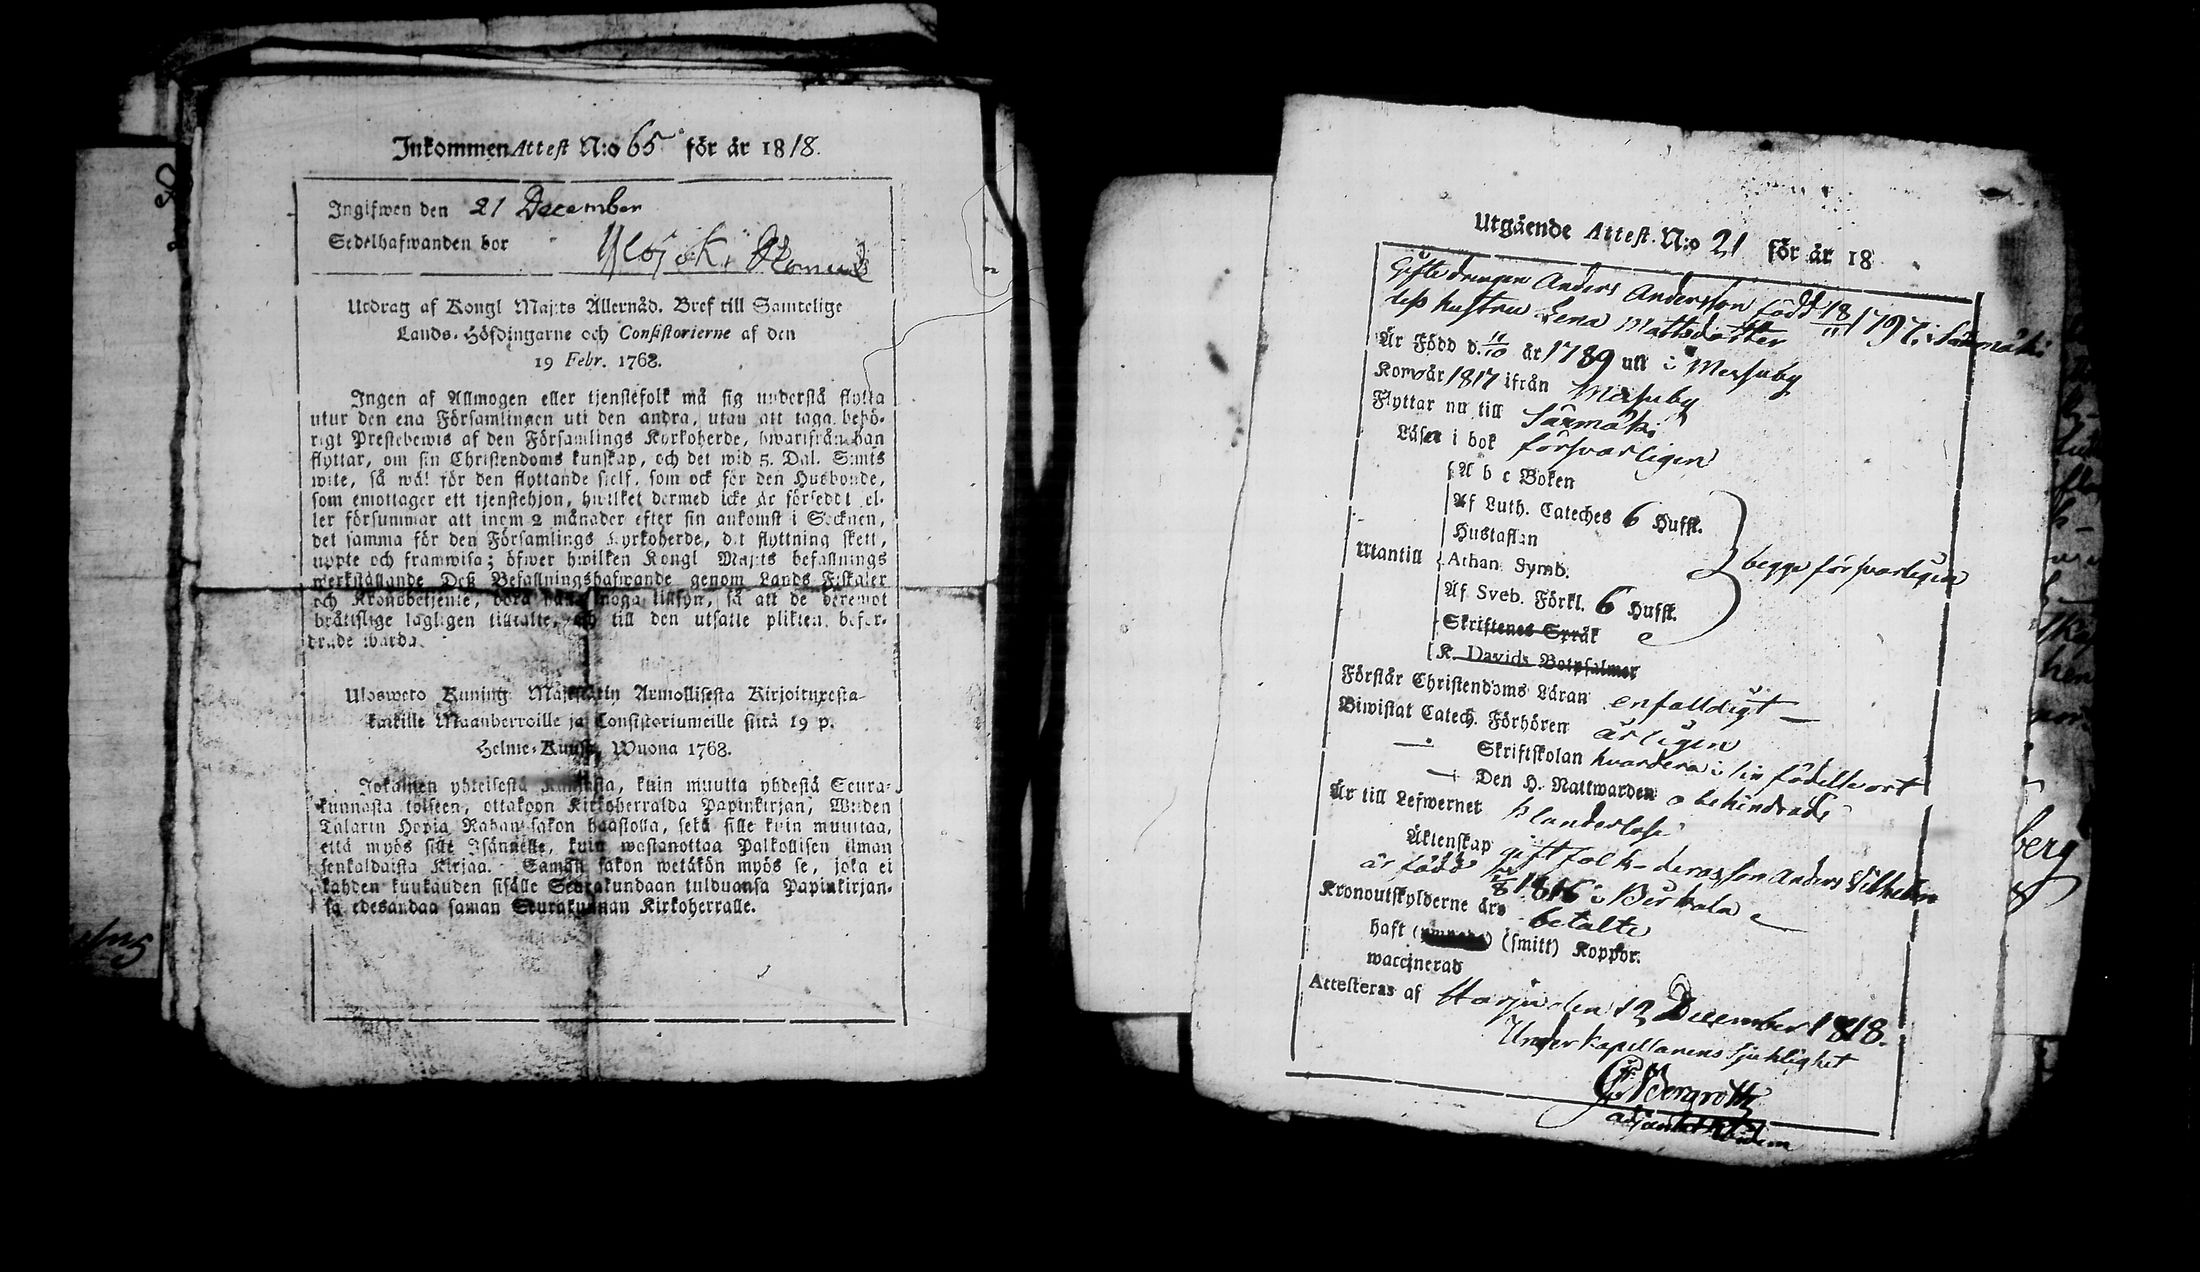 Inkommen Attest N:o 65 för år 1818.
Ingifwen den 21 December
Sedelhafwanden bor Ylöjoki
Utdrag af Kongl Maj:ts Allernåd. Bref till Samtelige
Lands-Höfdingarne och Consistorierne af den
19 Febr. 1768.
Ingen af Allmogen eller tjenstefolk må sig understå flytta
utur den ena Församlingen uti den andra, utan att taga behö-
rigt Prestebewis af den Församlings Kyrkoherde, hwarifrån han
flyttar, om sin Christendoms kunskap, och det wid 5. Dal. S:mts
wite, så wäl för den flyttande sielf, som ock för den Husbonde,
som emottager ett tjenstehjon, hwilket dermed icke är förseddt el-
ler försummar att inom 2 månader efter sin ankomst i Socknen,
det samma för den Församlings Kyrkoherde, dit flyttning skett,
uppte och framwisa; öfwer hwilken Kongl Maj:ts befallnings
werkställande Deß Befallningshafwande genom Lands Fiskaler
och Kronobetjente, böra hafwa noga tillsyn, så att de deremot
bråttslige lagligen tilltalte, och till den utsatte plikten befor-
drade warda.
Ulosweto Kuning: Majestetin Armollisesta Kirjoituxesta
kaikille Maanherroille ja Consistoriumeille siitä 19 p.
Helme-Kuusa, Wuona 1768.
Jokainen yhteisestä Kansasta, kuin muutta yhdestä Seura-
kunnasta toiseen, ottakoon Kirkoherralda Papinkirjan, Wiiden
Talarin Hopia Rahan sakon haastolla, sekä sille kuin muuttaa,
että myös sille Isännelle, kuin wastanottaa Palkollisen ilman
senkaldaista Kirjaa. Saman sakon wetäkön myös se, joka ei
kahden kuukauden sisälle Seurakundaan tulduansa Papinkirjan-
sa edesandaa saman Seurakunnan Kirkoherralle.
Utgående Attest. N:o 21 för år 18
Gifte drengen Anders Andersson född 18/11 1797 i Särmäki
deß hustru Lena Mattsdotter
Är Född d. 11/10 år 1789 uti i Messuby
Kom år 1817 ifrån Messuby
Flyttar nu till Särmäki
Läser i bok försvarligen
Utantill
A b c Boken
Af Luth. Cateches 6 Hufst.
Hustaflan
Athan. Symb.
Af Sveb. Förkl. 6 Hufst.
begge försvarligen
Skriftenes Språk
K. Davids Botpsalmer
Förstår Christendoms Läran enfalldigt
Biwistat Catech. Förhören årligen
Skriftskolan hvardera i sin födelseort
Den H. Nattwarden obehindrade
Är till Lefwernet klanderlöse
Äktenskap gift folk deras son Anders Vilhelm
är född 1816 i Birkala
Kronoutskylderne äro betalte
haft (smitt) Koppor.
waccinerad
Attesteras af Harju den 12 December 1818.
Under kapellanens sjuklighet
Bergroth
adjunct ibidem